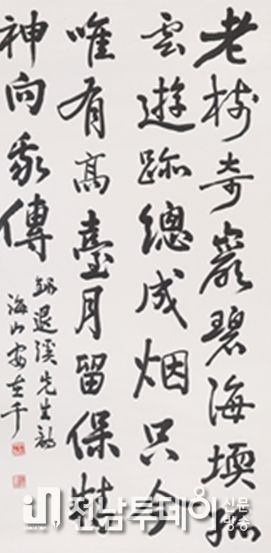 老樹奇巖碧海堧孤
雲遊跡總成烟只今
唯有高臺月留保精
神向我傳
錄退溪先生韻
海山
전남투데이 신문
방송